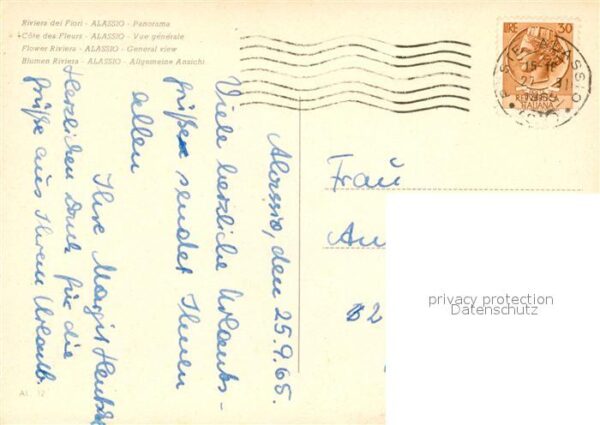 Riviera dei Fiori - ALASSIO - Panorama
Côte des Fleurs - ALASSIO - Vue générale
Flower Riviera - ALASSIO - General view
Blumen Riviera - ALASSIO - Allgemeine Ansicht
Alassio, den 25.9.65.
Viele herzliche Urlaubs-
grüße sendet Ihnen
allen
Ihre Margit
Herzlichen Dank für die
grüße aus Ihrem Urlaub.
AL. 12
LIRE 30
ITALIANA
ALASSIO
Frau
An
privacy protection
Datenschutz